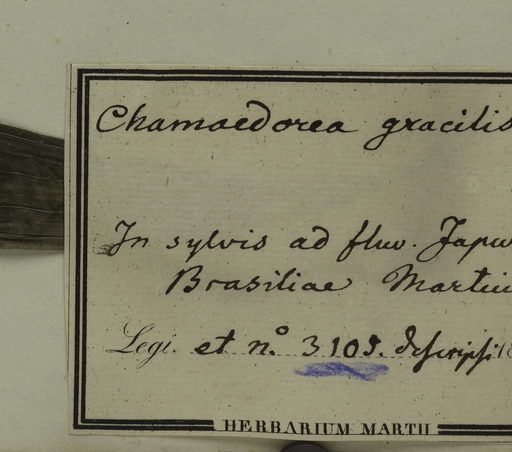 Chamaedorea gracilis
In sylvis ad fluv. Japu
Brasiliae Martiu
Legi. et n.º 3105. descripsi 18
HERBARIUM MARTII